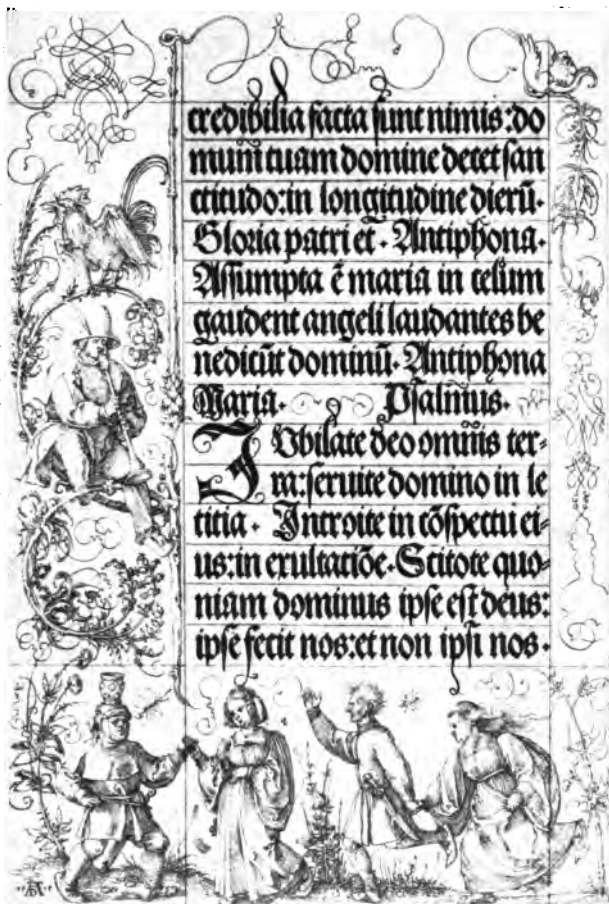 credibilia facta sunt nimis:do
mum tuam domine decet san
ctitudo:in longitudine dierū.
Gloria patri et. Antiphona.
Assumpta ē maria in celum
gaudent angeli laudantes be
nedicūt dominū. Antiphona
Maria. Psalmus.
IVbilate deo omnis ter-
ra:seruite domino in le
titia. Introite in cōspectu ei-
us:in exultatiōe. Scitote quo-
niam dominus ipse est deus:
ipse fecit nos:et non ipsi nos.
AD